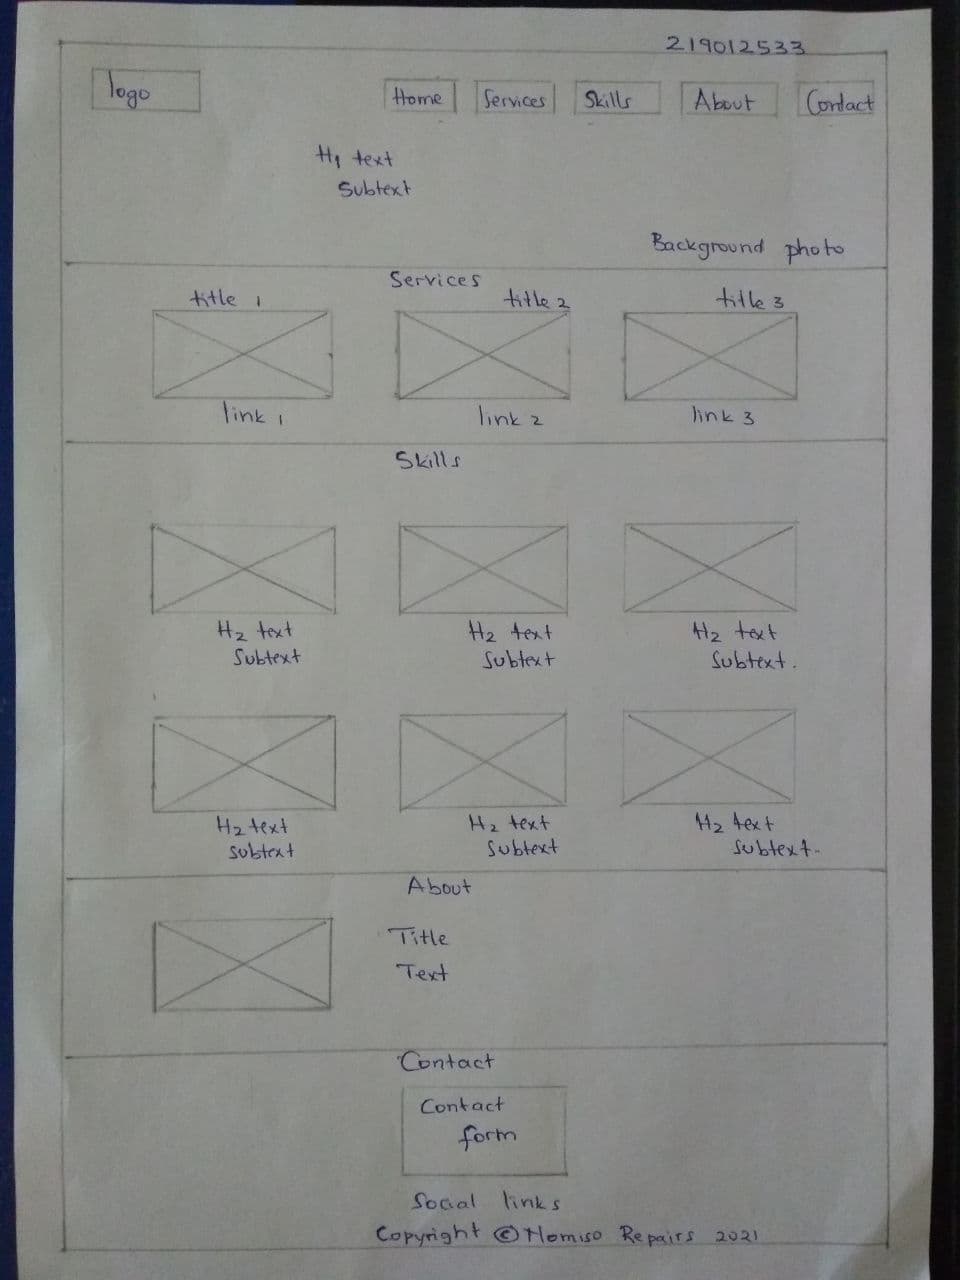 219012533
logo
Home Services Skills About Contact
H1 text
Subtext
Background photo
Services
title 1 title 2 title 3
link 1 link 2 link 3
Skills
H2 text H2 text H2 text
Subtext Subtext Subtext.
H2 text H2 text H2 text
subtext Subtext Subtext.
About
Title
Text
Contact
Contact
form
Social links
Copyright © Homiso Repairs 2021